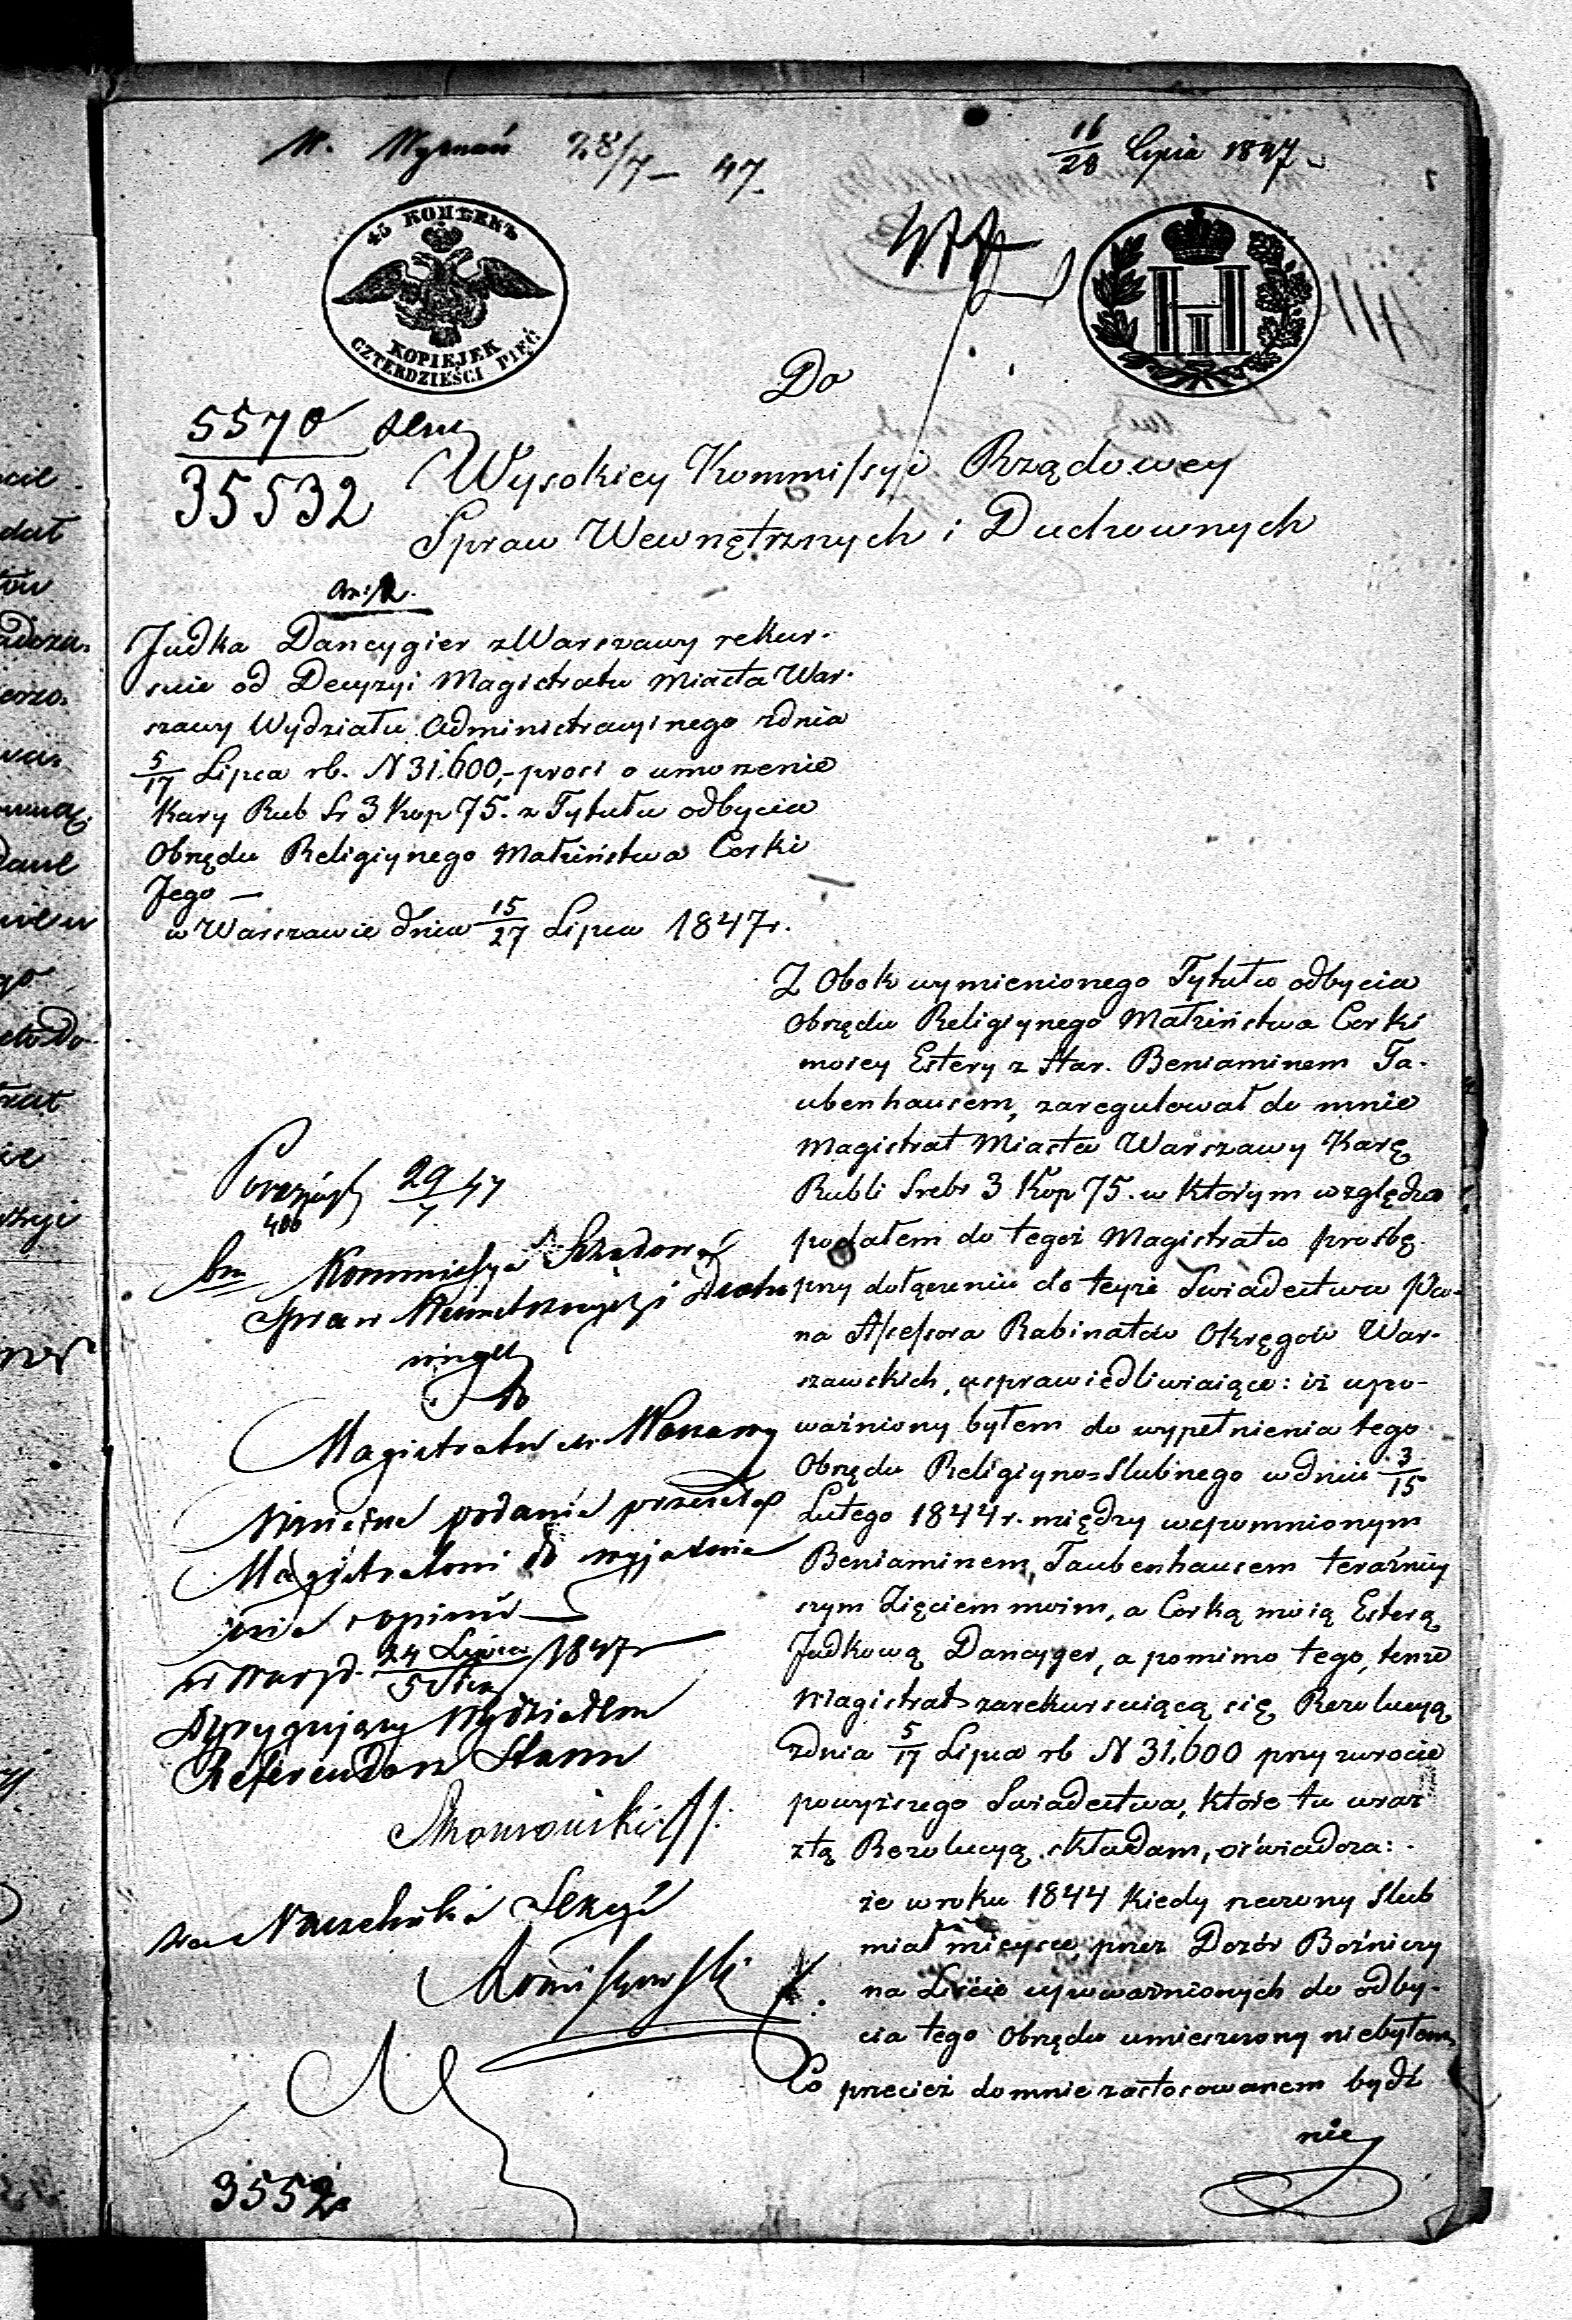 W. Wyznań 28/7 – 47
16/28 Lipca 1847
45 КОПѢЕКЪ
KOPIEJEK
CZTERDZIEŚCI PIĘĆ
Do
5570
35532
Wysokiey Kommissyi Rządowey
Spraw Wewnętrznych i Duchownych
Judka Dancygier z Warszawy rekur-
suie od Decyzyi Magistratu Miasta War-
szawy Wydziału Administracyinego zdnia
5/17 Lipca rb. N 31.600,- prosi o umorzenie
Kary Rub Sr 3 Kop 75. z Tytułu odbycia
Obrzędu Religiynego Małżeństwa Corki
Jego —
w Warszawie dnia 15/27 Lipca 1847r.
Z Obok wymienionego Tytułu odbycia
Obrzędu Religiynego Małżeństwa Corki
moiey Estery z Star. Beniaminem Ta-
ubenhausem, zaregulował do mnie
Magistrat Miasta Warszawy Karę
Rubli Srebr 3 Kop 75. w którym względzie
podałem do tegoż Magistratu prośbę
przy dołączeniu do teyże Swiadectwa Pa-
na Assessora Rabinatów Okręgów War-
szawskich, usprawiedliwiaiące: iż upo-
ważniony byłem do wypełnienia tego
Obrzędu Religiyno=Slubnego w dniu 3/15
Lutego 1844r. między wspomnionym
Beniaminem Taubenhausem teraźniey
szym Zięciem moim, a Corką moią Esterą
Judkową Dancyger, a pomimo tego, tenże
Magistrat zarekursuiącą się Rezolucyą
zdnia 5/17 Lipca rb N 31,600 przy zwrocie
powyższego Swiadectwa, które tu wraz
z tą Rezolucyą składam, oświadcza:
że w roku 1844 kiedy rzeczony Slub
miał mieysce, przez Dozór Bożniczy
na Liście upoważnionych do odby-
cia tego Obrzędu umieszczony niebyłem,
Co przecież do mnie zastosowanem bydź
nie
29/7 47
Kommissya Rządowa
Spraw Wewnetrznych i Ducho
wnych
do
Magistratu m. Warszawy
Ninieisze podanie przesełaiąc
Magistratowi do wyjaśnie
nia i opinii
w Warsz d. 24 Lipca/5 Sier 1847r
Dyrygujący Wydziałem
Referendarz Stanu
za Naczelnika Sekcyi
3552